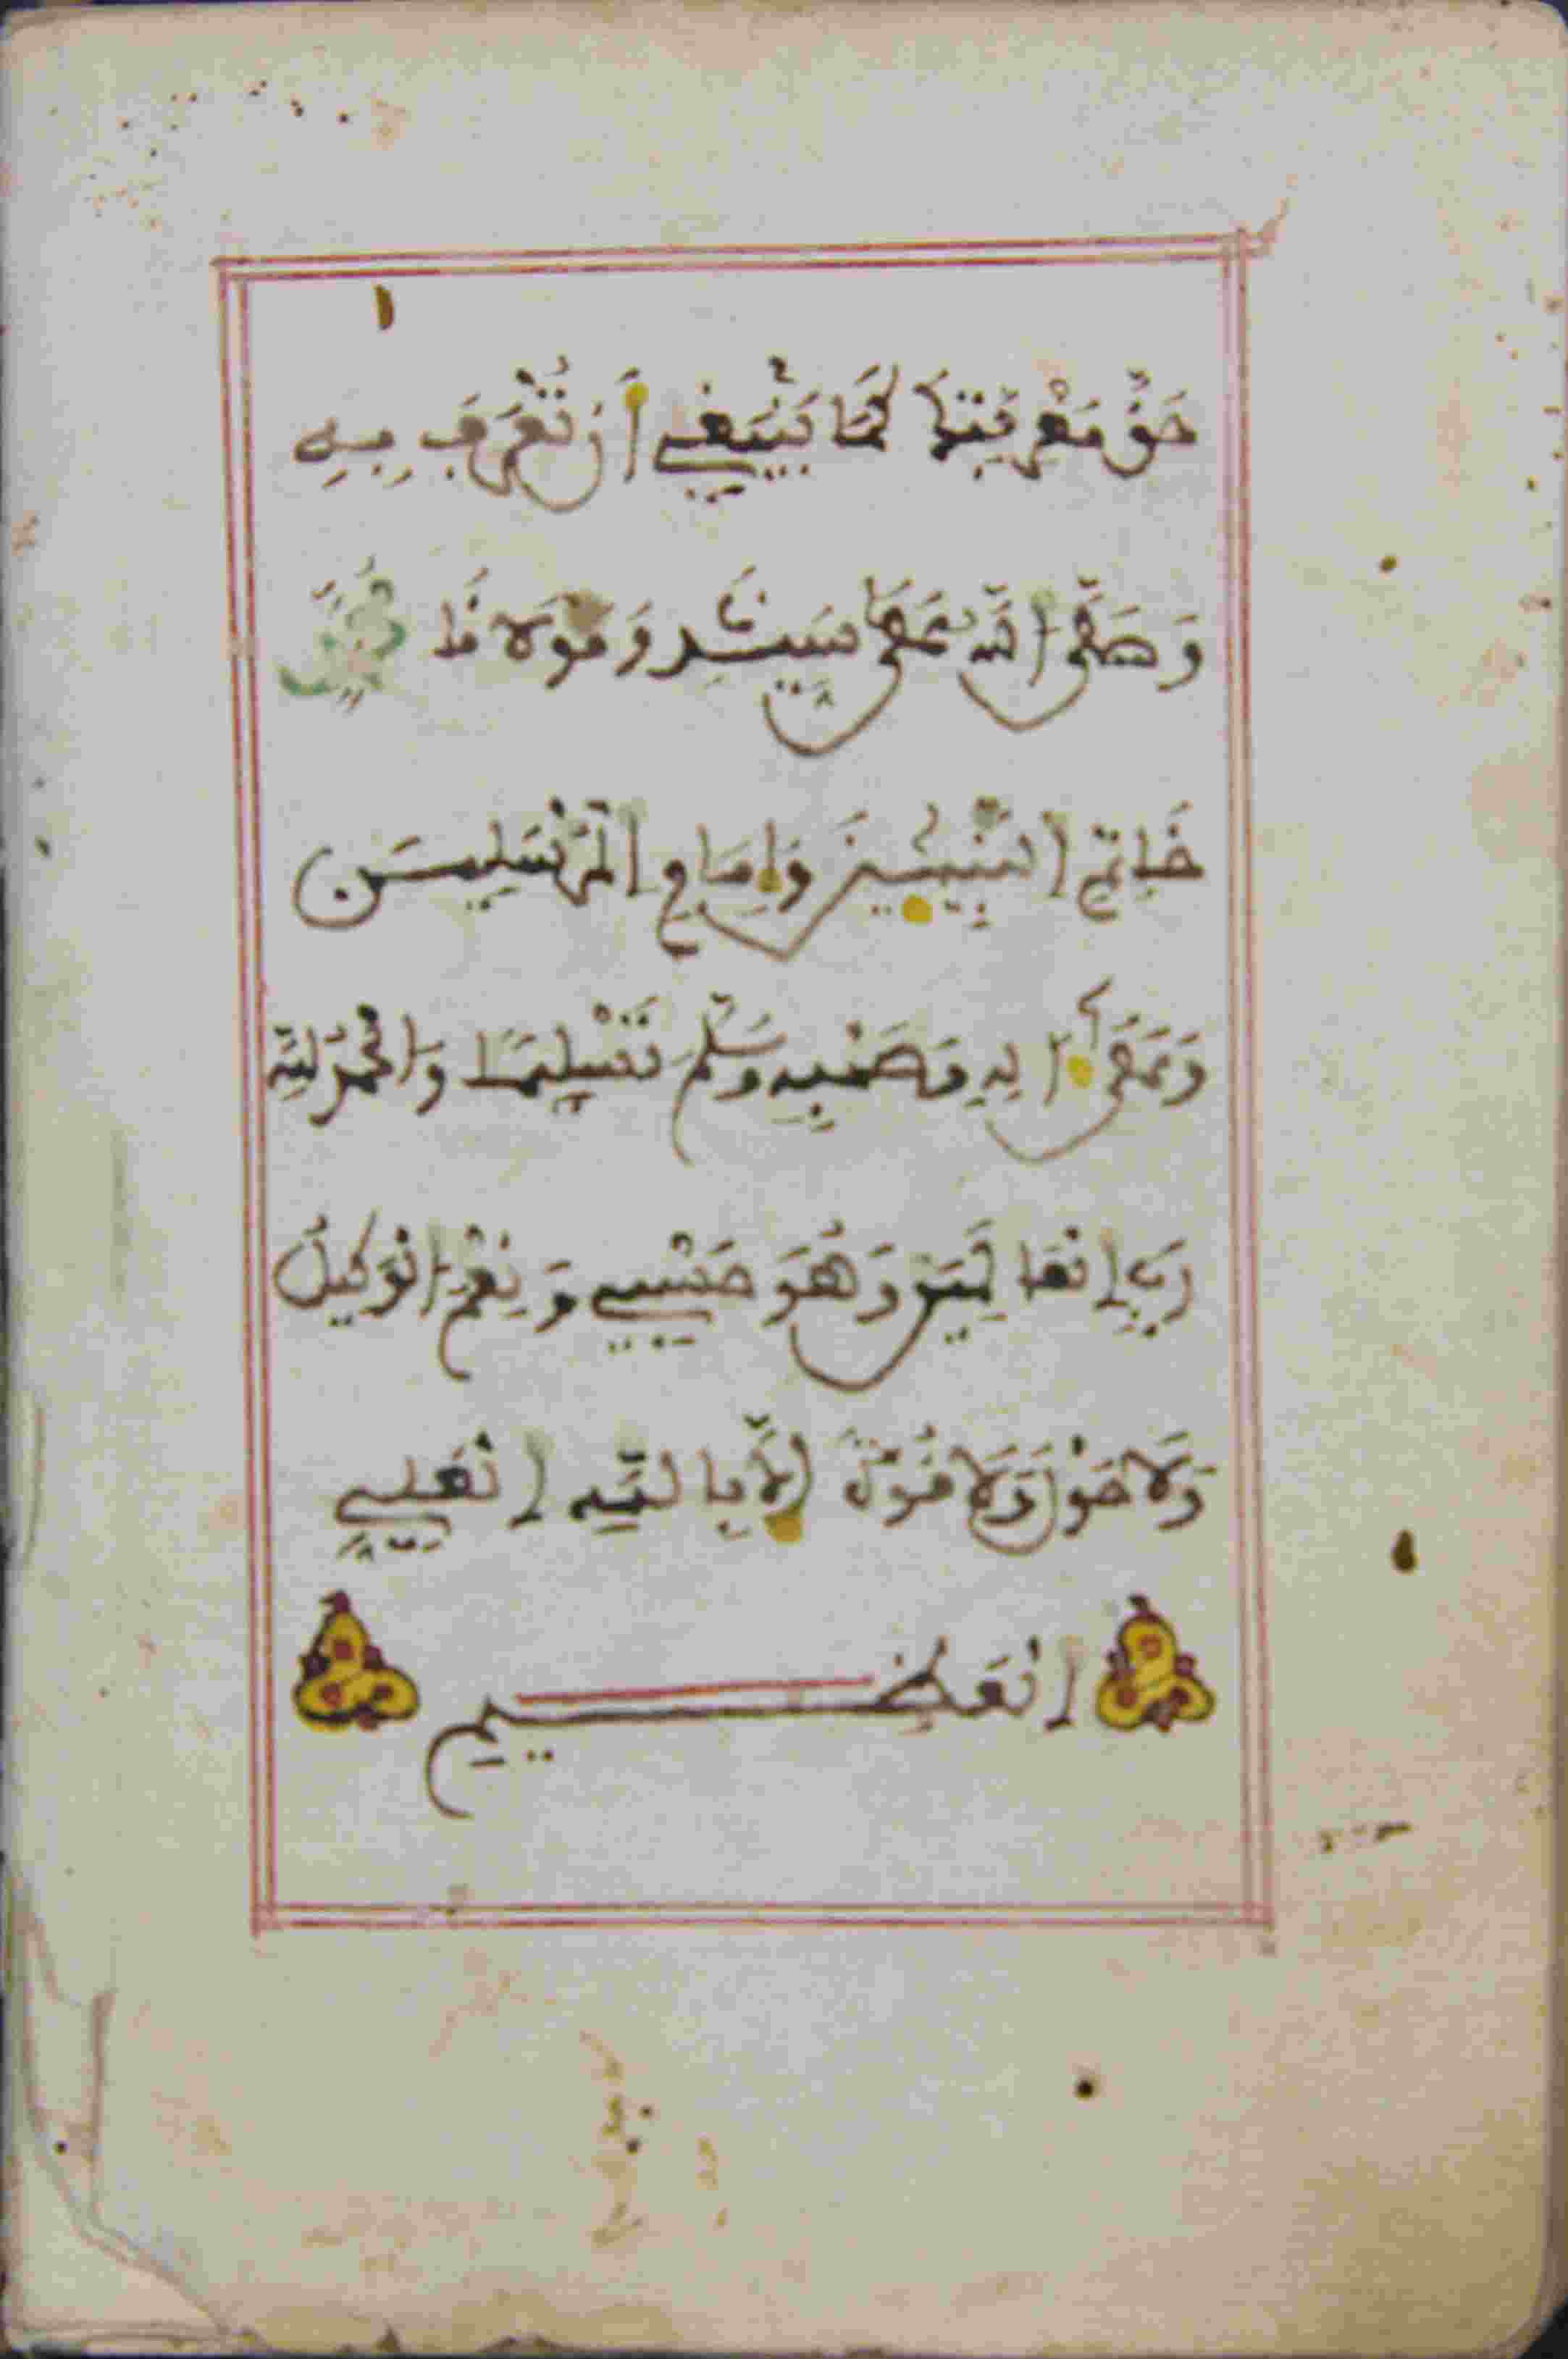 حَقَّ مَعْرِفَتِنَا كَمَا يَنْبَغِي أَن تُعْرَفَ بِهِ
وَصَلَّى اللهُ عَلَى سَيِّدِنَا وَمَوْلَانَا مُحَمَّدٍ
خَاتِمِ النَّبِيِّينَ وَإِمَامِ الْمُرْسَلِينَ
وَعَلَى آلِهِ وَصَحْبِهِ وَسَلِّمْ تَسْلِيمًا وَالْحَمْدُ لِلَّهِ
رَبِّ الْعَالَمِينَ وَهُوَ حَسْبِي وَنِعْمَ الْوَكِيلُ
وَلَا حَوْلَ وَلَا قُوَّةَ إِلَّا بِاللَّهِ الْعَلِيِّ
الْعَظِيمِ